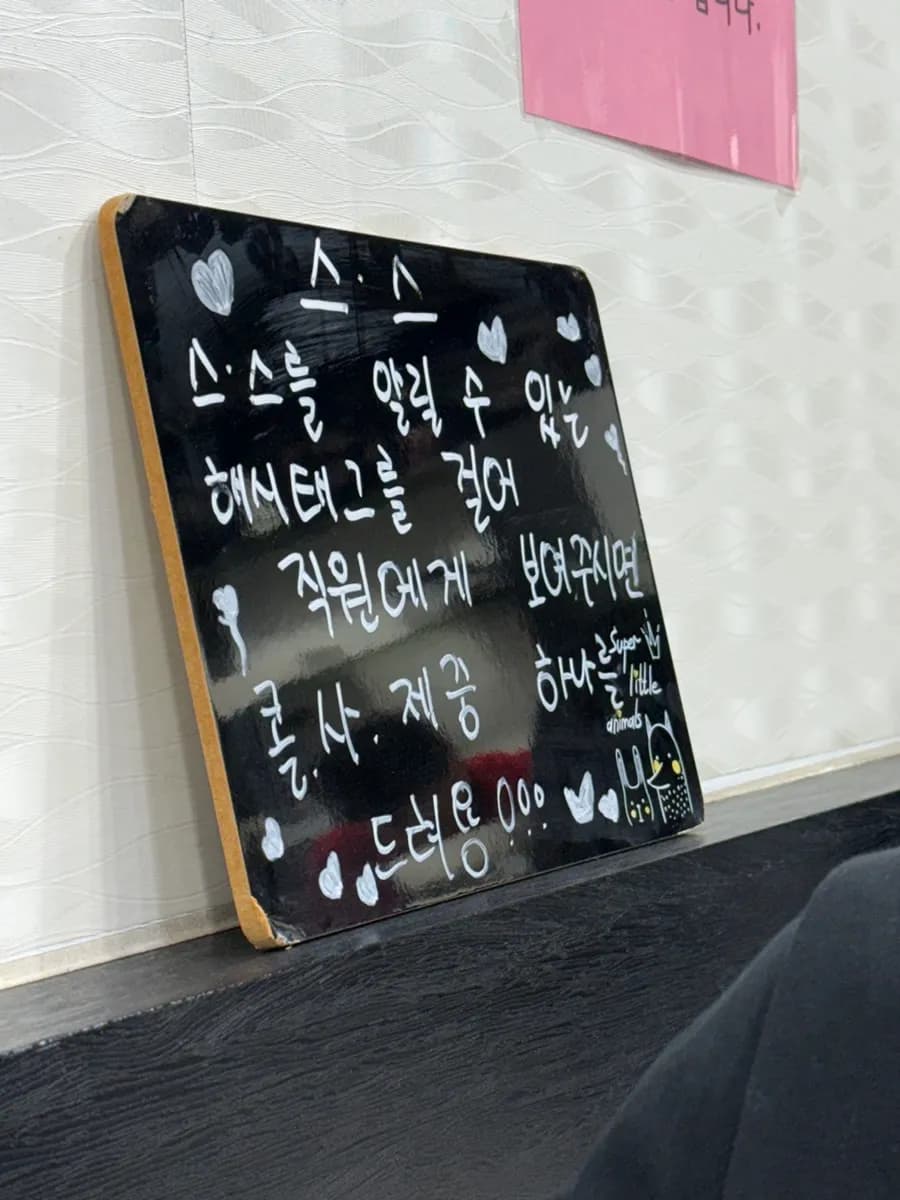 니다.
스·스
스·스를 알릴 수 있는
해시태그를 걸어
직원에게 보여주시면
콜.사.제중 하나를
Super
little
animals
드려용!!!